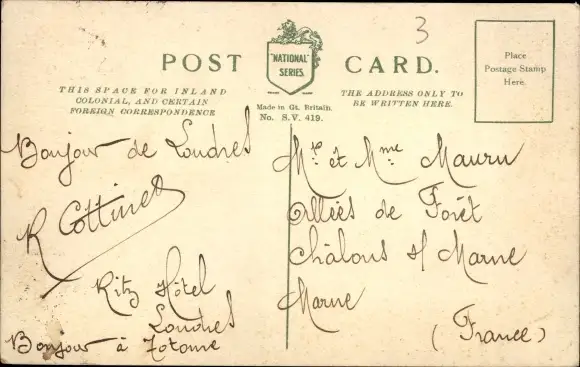 3
POST CARD.
"NATIONAL"
SERIES.
THIS SPACE FOR INLAND
COLONIAL, AND CERTAIN
FOREIGN CORRESPONDENCE
Made in Gt. Britain.
No. S.V. 419.
THE ADDRESS ONLY TO
BE WRITTEN HERE.
Place
Postage Stamp
Here.
Bonjour de Londres
R Cottinet
Ritz Hôtel
Londres
Bonjour à
Mr et Mme
Allées de Forêt
Châlons s/ Marne
Marne
(France)